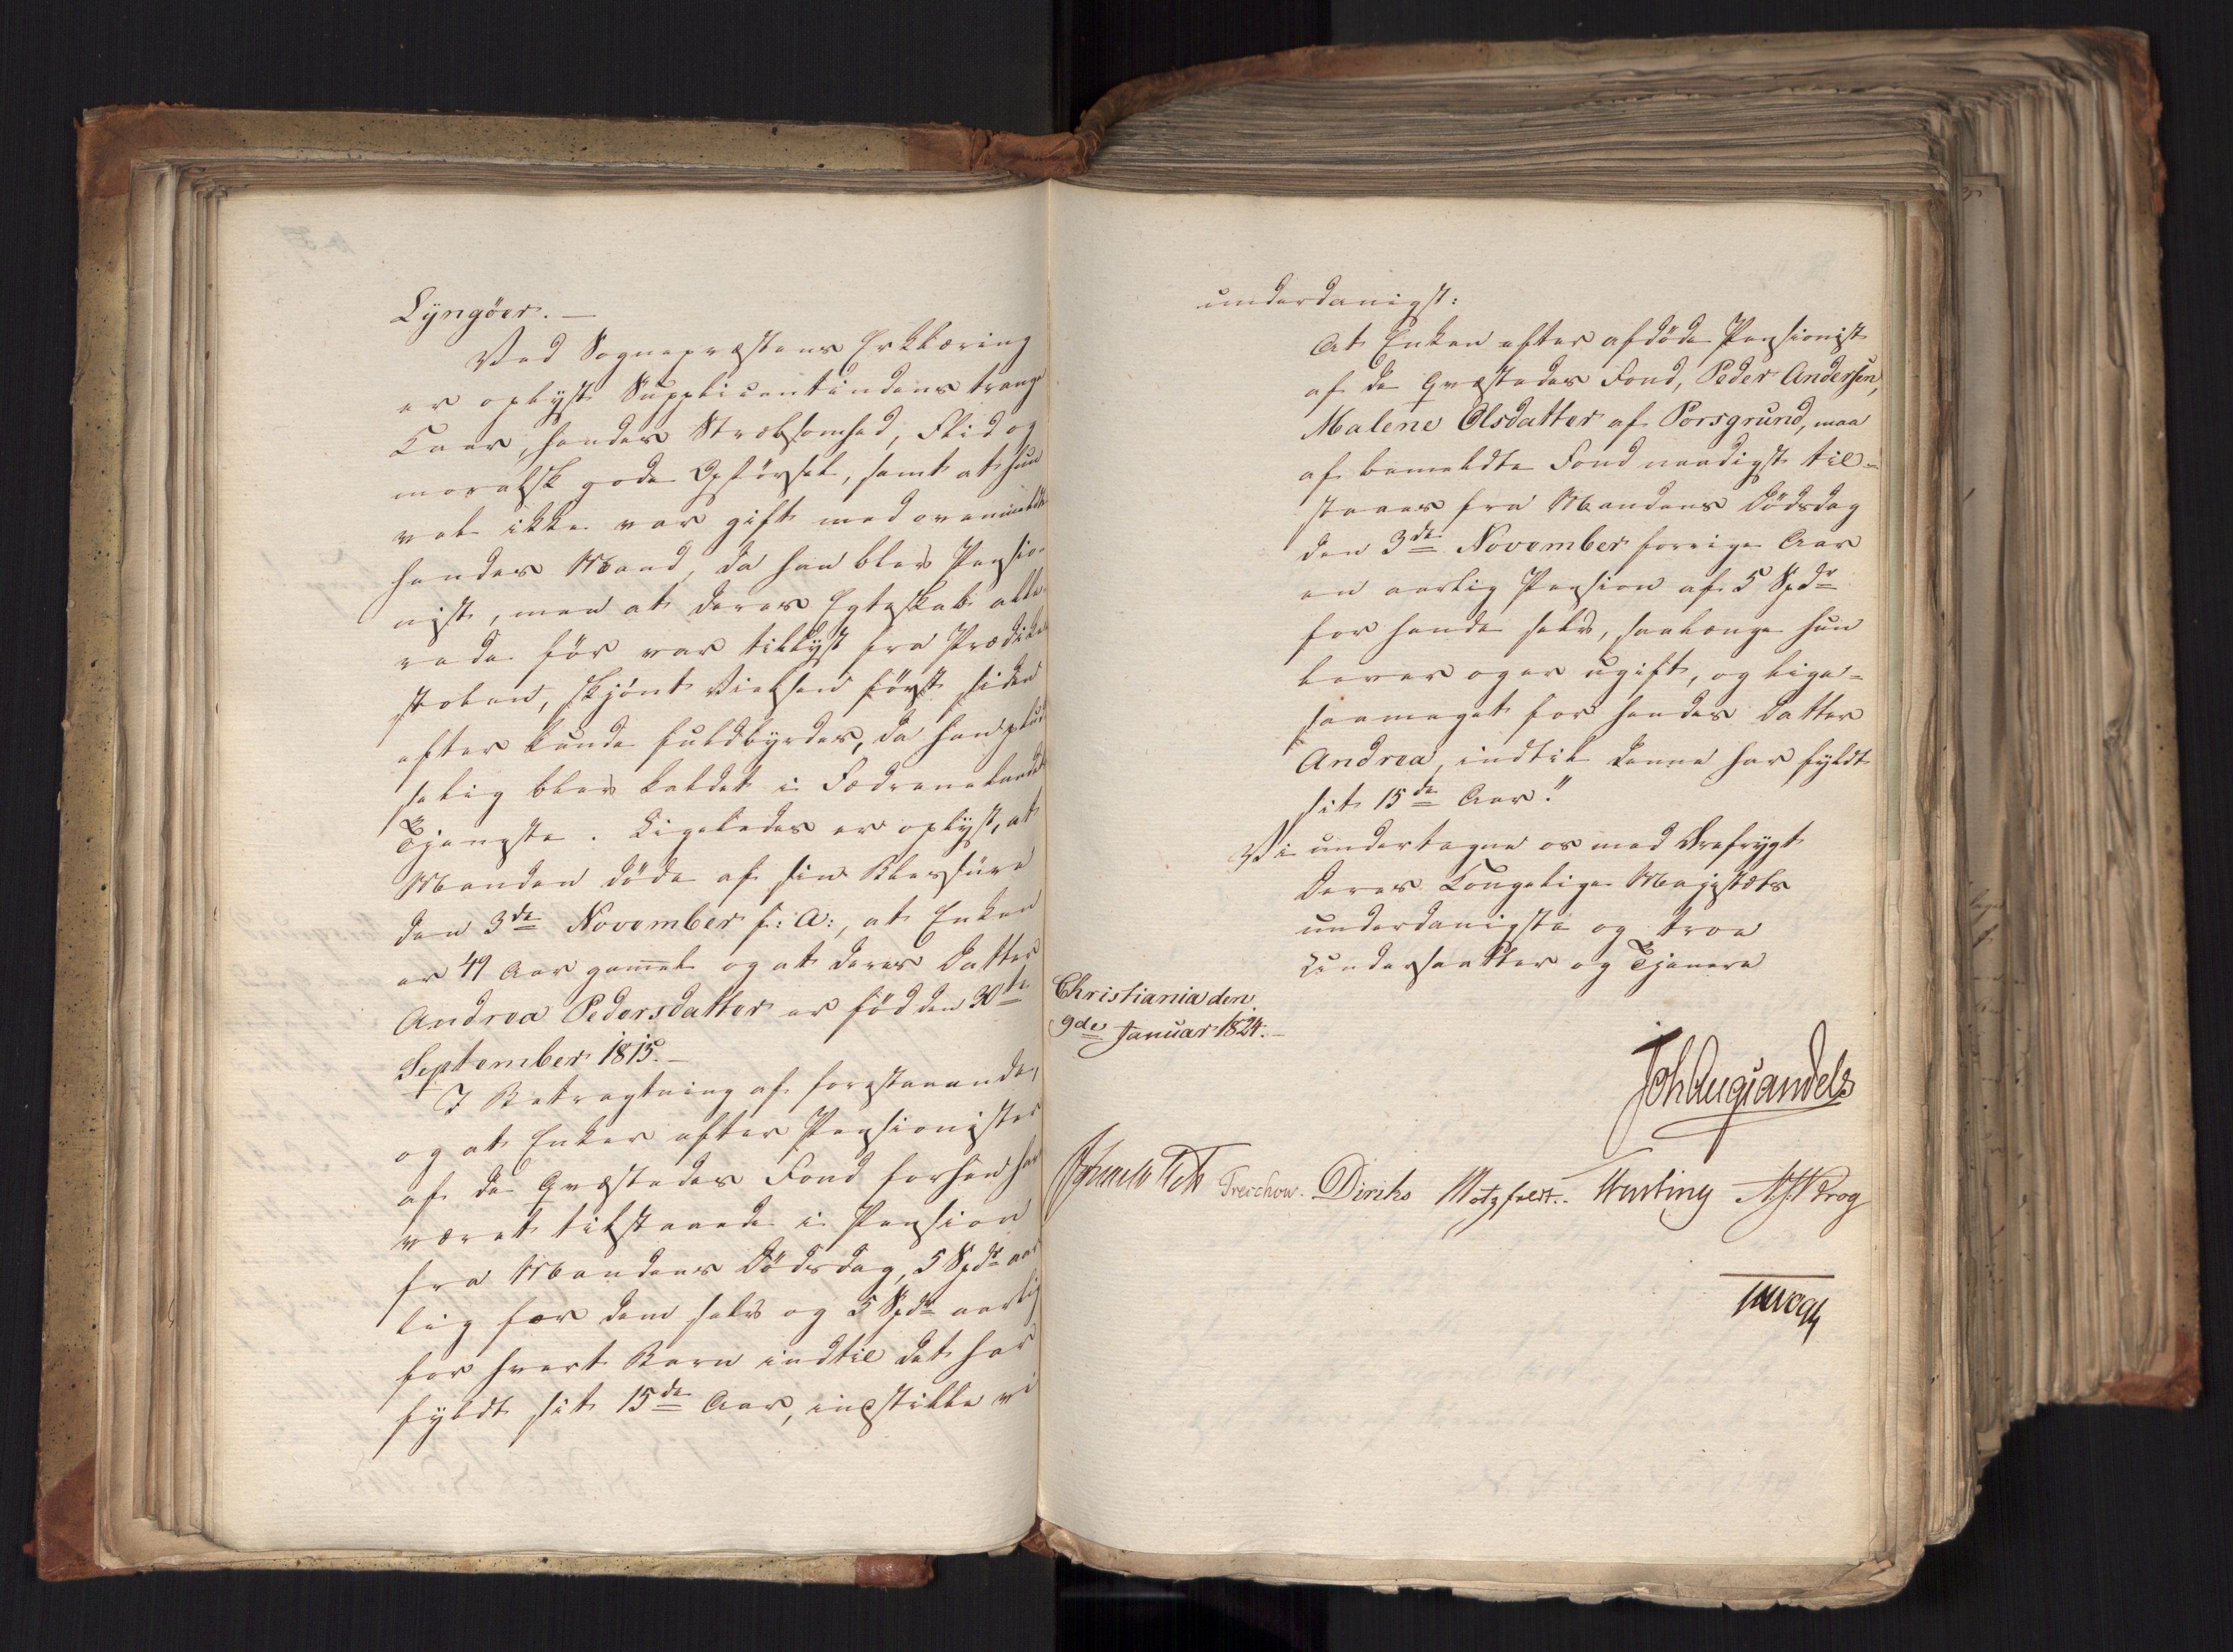 Lyngöer. —
Ved Sognepræstens Erklæring
er oplyst Supplicantindens trange
Kaar, hendes Stræbsomhed, Flid og
moralsk gode Opførsel, samt at hun
vel ikke var gift med ovenmeldte
hendes Mand, da han blev Pensio-
nist, men at deres Egteskab alle-
rede før var tillyst fra Prædike-
stolen, skjönt Vielsen först siden
efter kunde fuldbyrdes, da han plud
selig blev kaldet i Fædrenelandets
Tjeneste. Ligeledes er oplyst, at
Manden döde af sin Blessüre
den 3de November f: A:, at Enken
er 49 Aar gammel og at deres Datter
Andrea Pedersdatter er föd den 30te
September 1815. —
I Betragtning af foranstaaende,
og at Enker efter Pensionister
af de Qvæstedes Fond forhen har
været tilstaaede i Pension
fra Mandens Dödsdag, 5 Spdr aar
lig for dem selv og 5 Spdr aarlig
for hvert Barn indtil det har
fyldt sit 15de Aar, indstille vi
underdanigst:
At Enken efter afdöde Pensionist
af de Qvæstedes Fond, Peder Andersen,
Malene Olsdatter af Porsgrund, maa
af bemeldte Fond naadigst til-
staaes fra Mandens Dödsdag
den 3de November forrige Aar
en aarlig Pension af 5 Spdr
for hende selv, saalænge hun
lever og er ugift, og lige-
saameget for hendes Datter
Andrea, indtil denne har fyldt
sit 15de Aar."
Vi undertegne os med Ærefrygt
Deres Kongelige Majestæts
underdanigste og troe
Undersaatter og Tjenere
Christiania den
9de Januar 1824. —
Joh Aug Sandels
Treschow. Diriks Motzfeldt. Krog